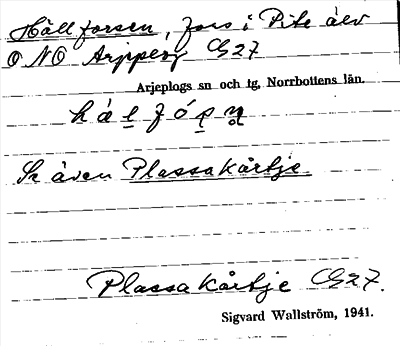 Hällforsen, fors i Pite älv
O NO Arjeplog Gz 27
Arjeplogs sn och tg, Norrbottens län.
Se även Plassakårtje
Plassakårtje Gz 27.
Sigvard Wallström, 1941.